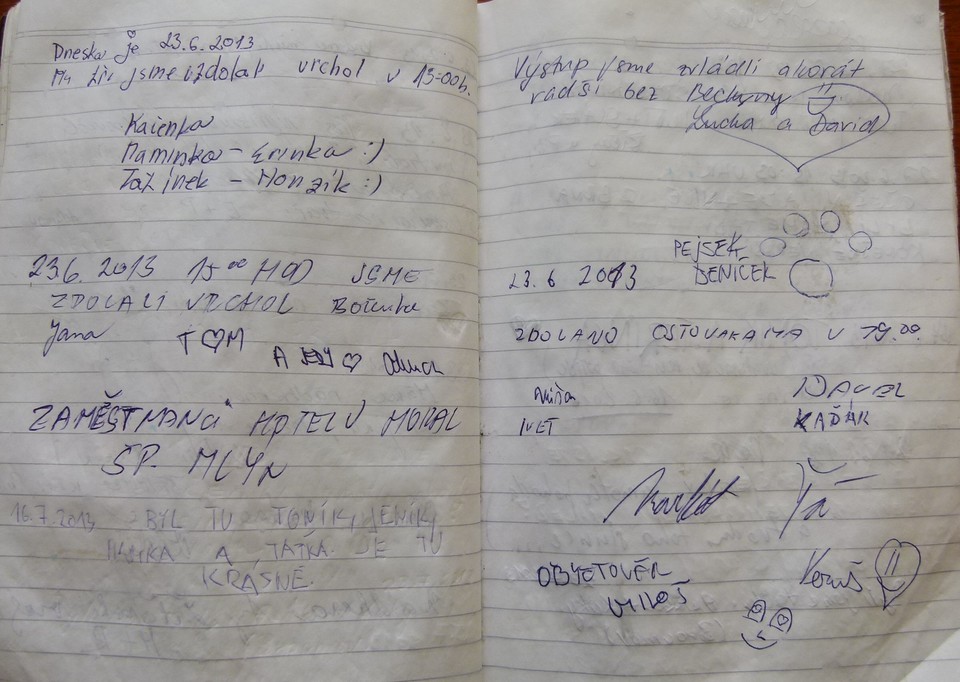 Dneska je 23.6.2013
My živ jsme zdolali vrchol v 13:00h.
Kačenka
Maminka - Erinka :)
Taťínek - Honzík :)
23.6. 2013 15 00 HOD JSME
ZDOLALI VRCHOL Boženka
Jana TOM
A
ZAMĚSTNANCI HOTELU MORAL
ŠP. MLÝN
16.7.2013 BYL TU TONÍK, JENÍK,
MAMKA A TAŤKA. JE TU
KRÁSNĚ.
Výstup jsme zvládli akorát
radši bez Bechyny
Lucka a David
PEJSEK
BENÍČEK
23.6 2013
ZDOLÁNO OSTOVAKAMA V 19.00.
IVET
PAVEL
KAĎÁK
OBYETOVĚR
MILOŠ